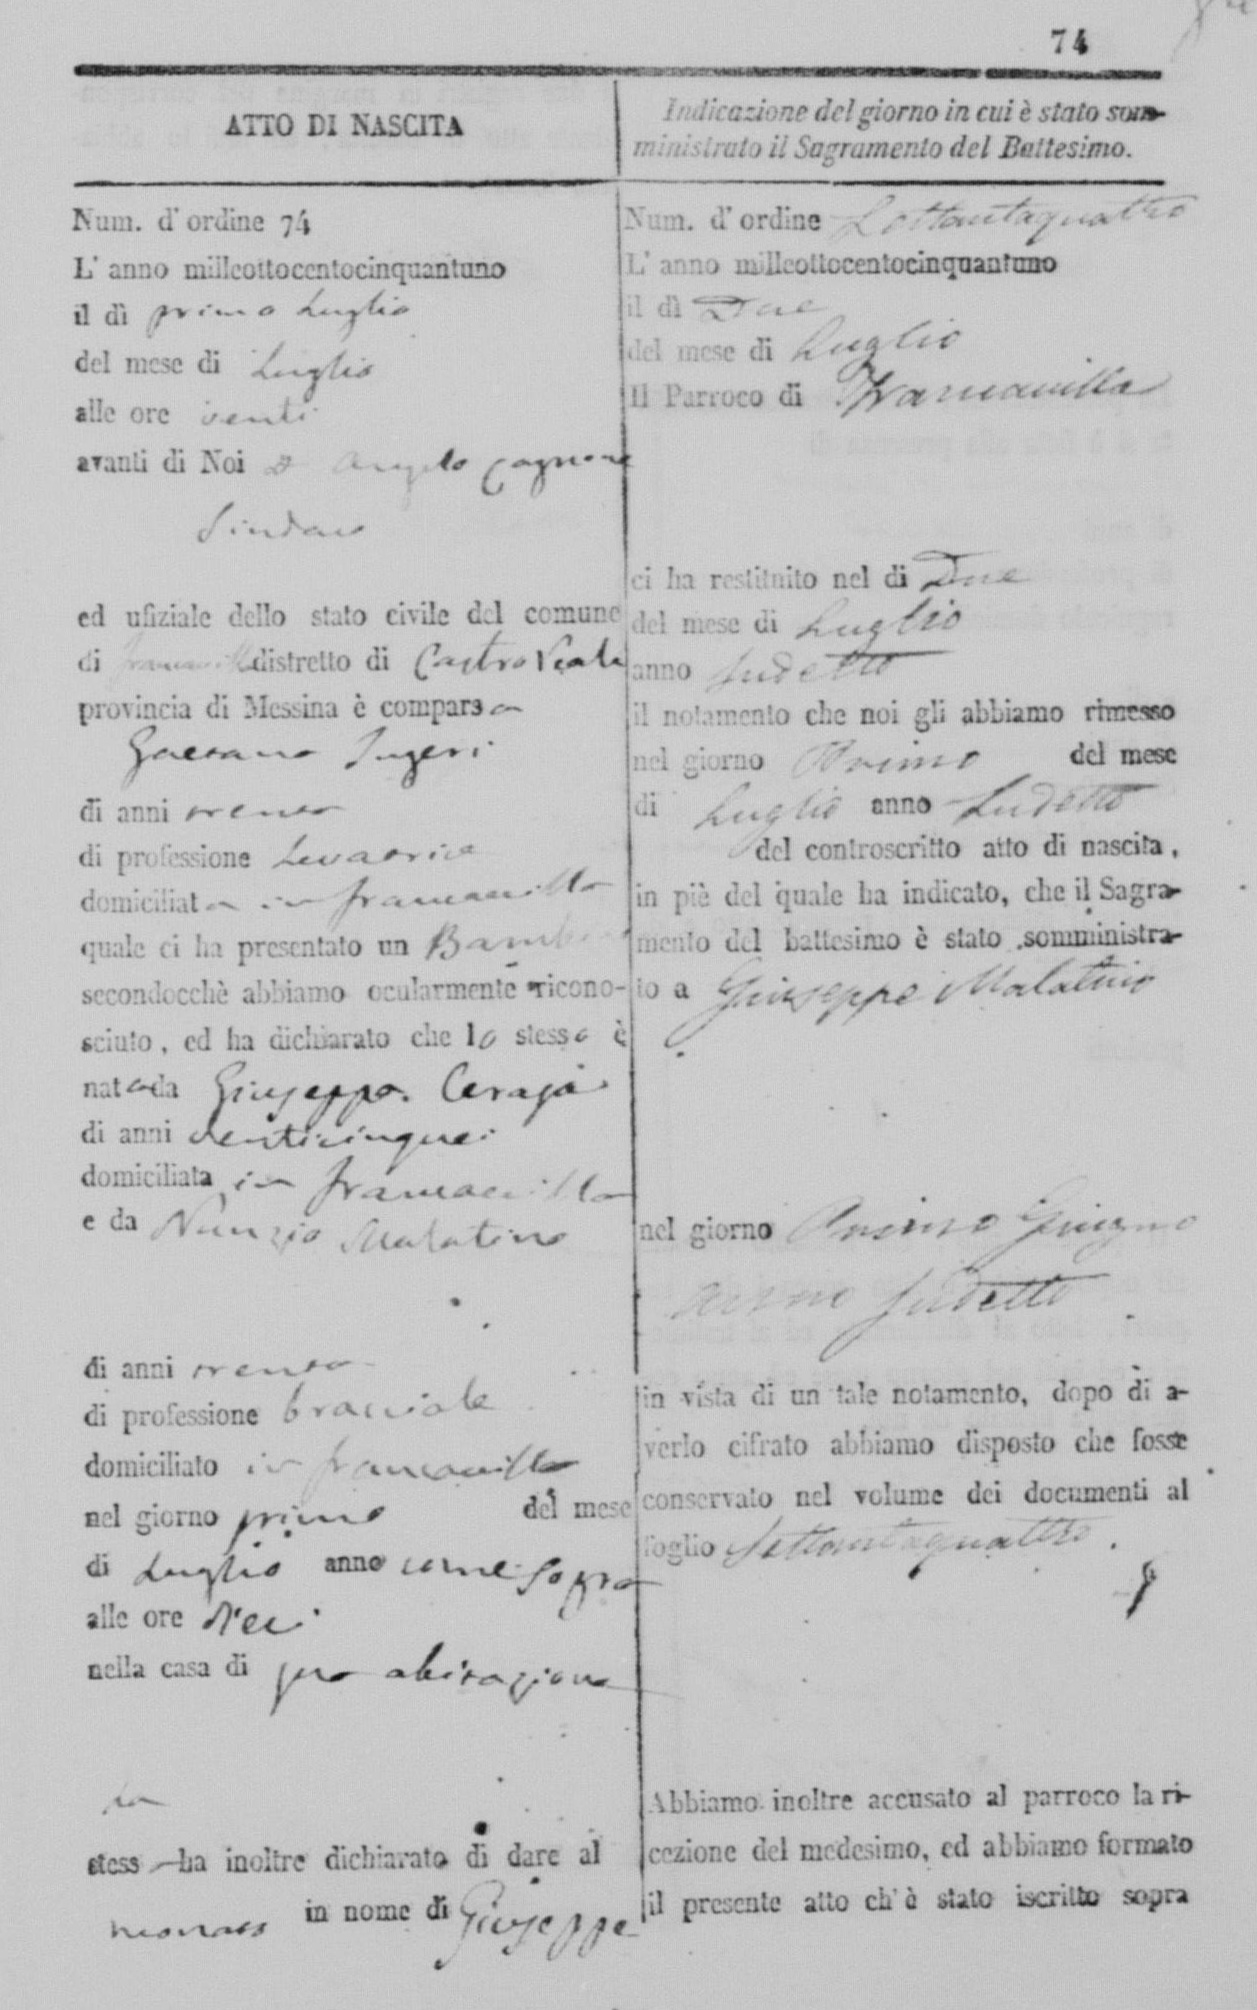 74
ATTO DI NASCITA
Num. d'ordine 74
L'anno milleottocentocinquantuno
il dì primo Luglio
del mese di Luglio
alle ore venti
avanti di Noi D Angelo Cagnone
Sindaco
ed ufiziale dello stato civile del comune
di francavilla distretto di Castro Reale
provincia di Messina è comparsa
Gaetana Ingeri
di anni trenta
di professione Levatrice
domiciliata in francavilla
quale ci ha presentato un Bambino
secondocchè abbiamo ocularmente ricono-
sciuto, ed ha dichiarato che lo stesso è
nato da Giuseppa Ceraja
di anni venticinque
domiciliata in francavilla
e da Nunzio Malatino
di anni trenta
di professione bracciale
domiciliato in francavilla
nel giorno primo del mese
di Luglio anno come sopra
alle ore dieci
nella casa di sua abitazione
La
stess ha inoltre dichiarato di dare al
neonato in nome di Giuseppe
Indicazione del giorno in cui è stato som-
ministrato il Sagramento del Battesimo.
Num. d'ordine Settantaquattro
L'anno milleottocentocinquantuno
il dì Due
del mese di Luglio
Il Parroco di Francavilla
ci ha restituito nel di Due
del mese di Luglio
anno sudetto
il notamento che noi gli abbiamo rimesso
nel giorno Primo del mese
di Luglio anno Sudetto
del controscritto atto di nascita,
in piè del quale ha indicato, che il Sagra-
mento del battesimo è stato somministra-
to a Giuseppe Malatino
nel giorno Primo Giugno
anno sudetto
in vista di un tale notamento, dopo di a-
verlo cifrato abbiamo disposto che fosse
conservato nel volume dei documenti al
foglio Settantaquattro.
Abbiamo inoltre accusato al parroco la ri-
cezione del medesimo, ed abbiamo formato
il presente atto ch'è stato iscritto sopra